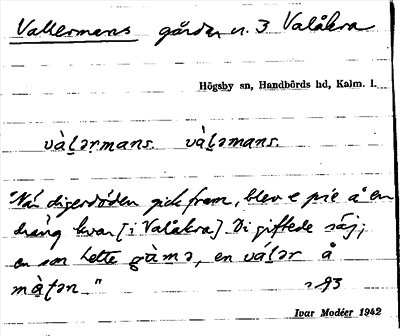 Vallermans gården n. 3 Valåkra
Högsby sn, Handbörds hd, Kalm. l.
và̱lərmans. và̱ləmans.
"Nä digerdöden gick fram, blev e pie å en
dräng kvar [i Valåkra]. Di giftede säj;
en son hette gàmə, en válər å
màtən."
Ivar Modéer 1942